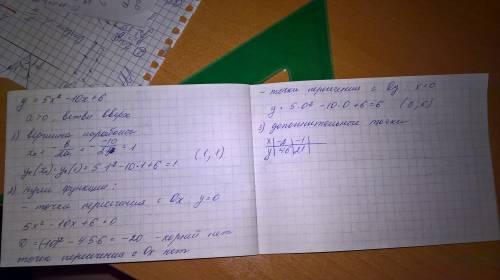 y = 5x² - 10x + 6
a>0, ветви вверх
1) вершина параболы
x₀ = - b/2a = - -10/2·5 = 1
y₀(x₀) = y₀(1) = 5·1² - 10·1 + 6 = 1 (1, 1)
2) нули функции:
- точки пересечения с Ox y=0
5x² - 10x + 6 = 0
D = (-10)² - 4·5·6 = -20 - корней нет
точек пересечения с Ox нет
- точки пересечения с Oy: x=0
y = 5·0² - 10·0 + 6 = 6 (0, 6)
3) дополнительные точки
x | -2 | -1 |
y | 46 | 21 |